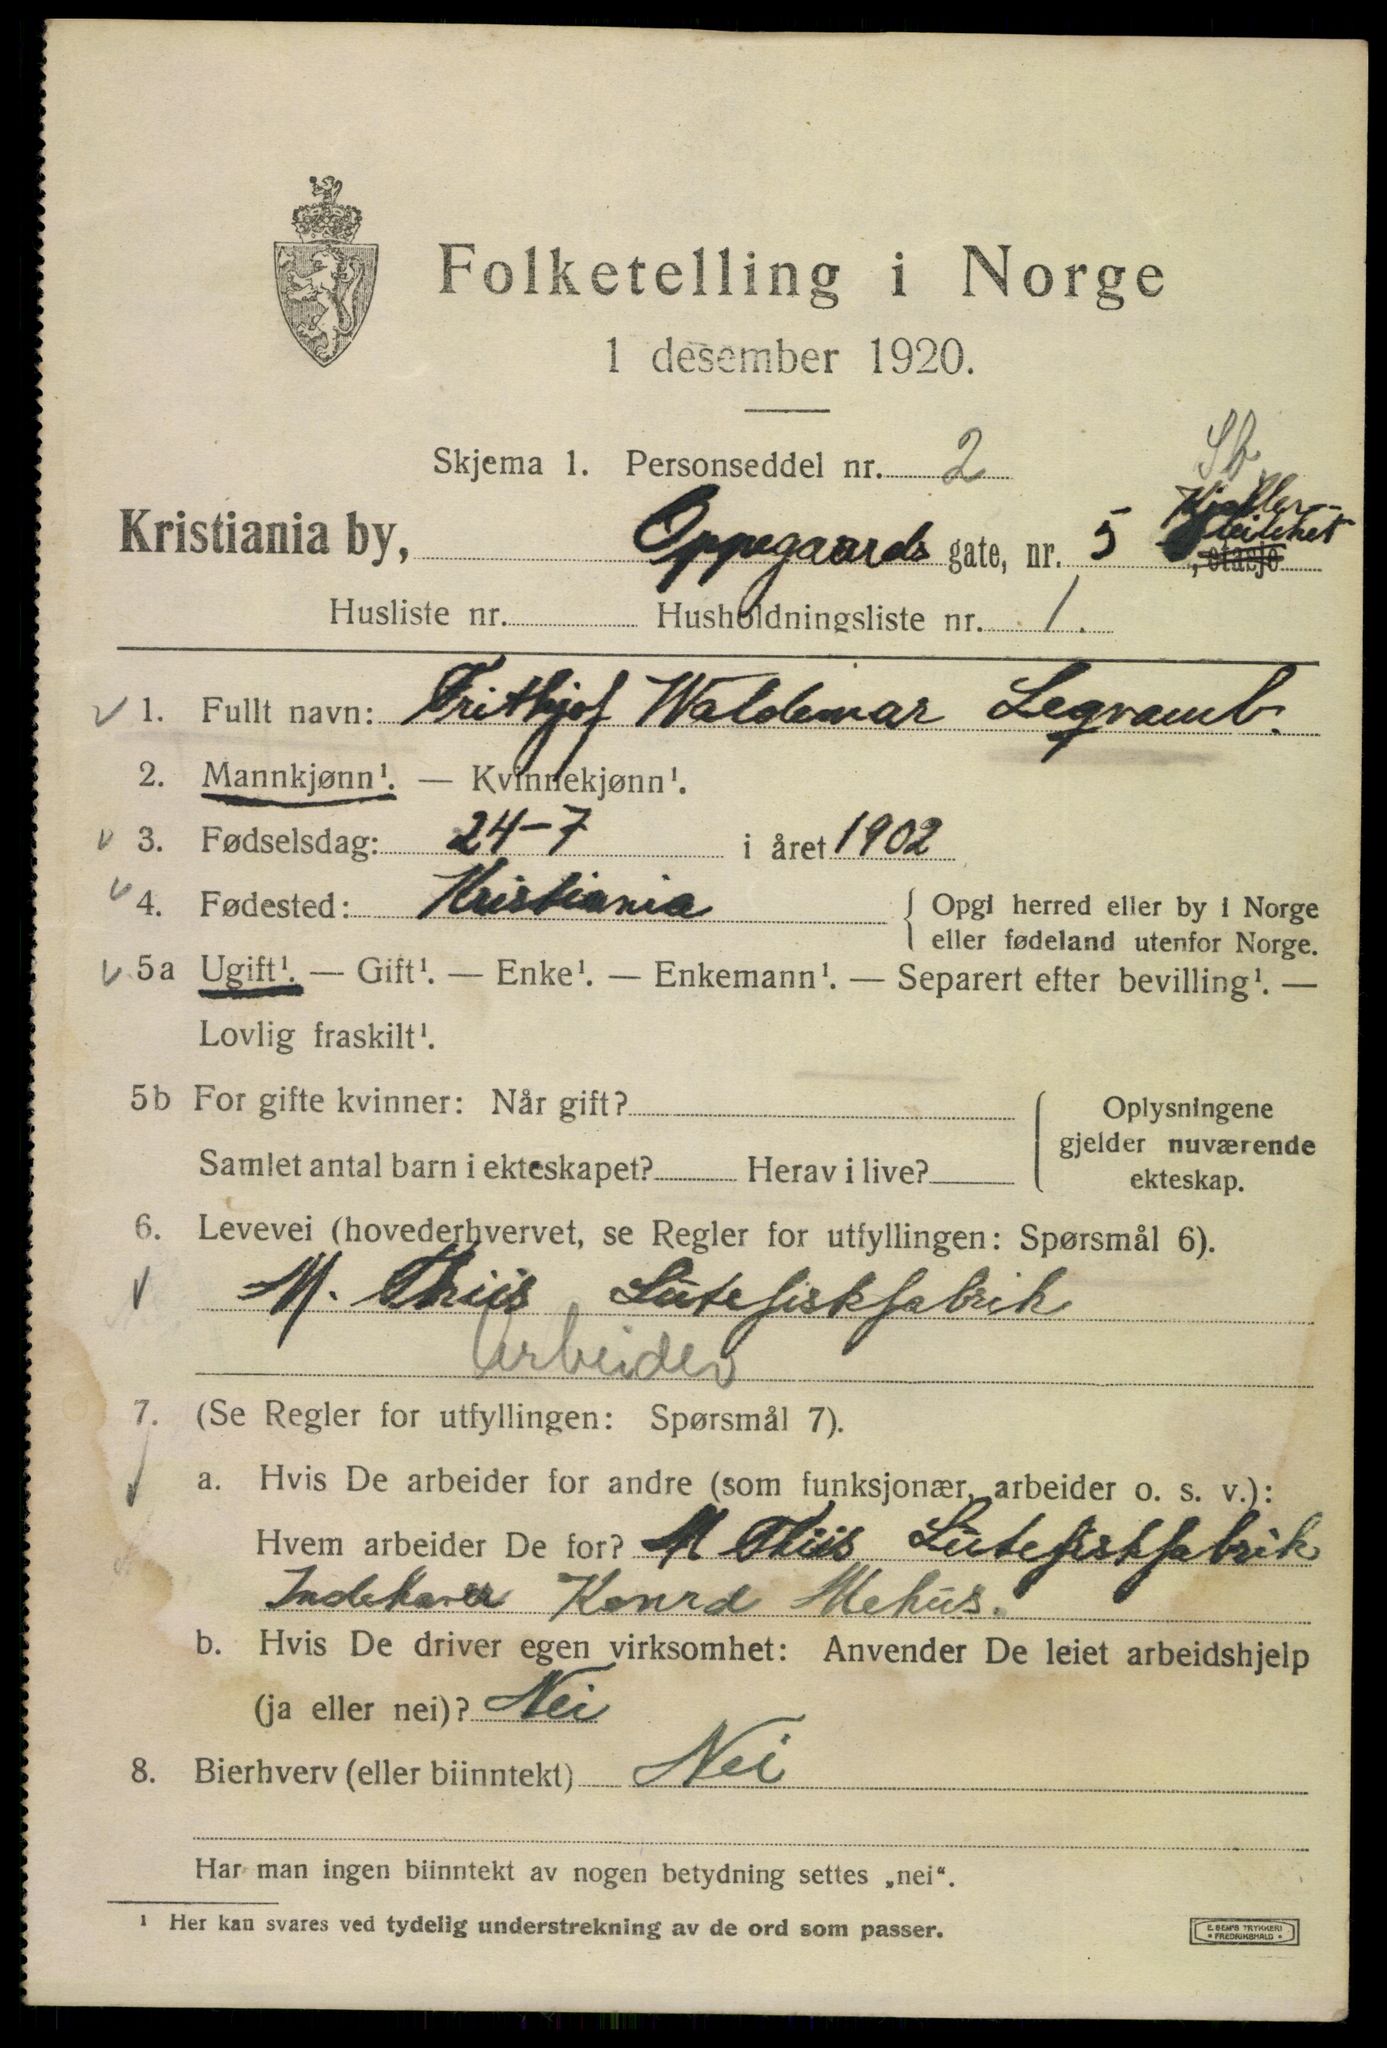 Folketelling i Norge
1 desember 1920.
Skjema 1. Personseddel nr. 2
Kristiania by, Oppegaards gate, nr. 5 Kjeller-
leilihet
, etasje
Husliste nr. Husholdningsliste nr. 1.
1. Fullt navn: Frithjof Waldemar Legvamb.
2. Mannkjønn¹. — Kvinnekjønn¹.
3. Fødselsdag: 24-7 i året 1902
4. Fødested: Kristiania { Opgi herred eller by i Norge
eller fødeland utenfor Norge.
5a Ugift¹. — Gift¹. — Enke¹. — Enkemann¹. — Separert efter bevilling¹. —
Lovlig fraskilt¹.
5b For gifte kvinner: Når gift? { Oplysningene
gjelder nuværende
Samlet antal barn i ekteskapet? Herav i live?
ekteskap.
6. Levevei (hovederhvervet, se Regler for utfyllingen: Spørsmål 6).
M. Thiis Lutefiskfabrik
Arbeider
7. (Se Regler for utfyllingen: Spørsmål 7).
a. Hvis De arbeider for andre (som funksjonær, arbeider o. s. v.):
Hvem arbeider De for? M Thiis Lutefiskfabrik
Indehaver Konrd Mehus.
b. Hvis De driver egen virksomhet: Anvender De leiet arbeidshjelp
(ja eller nei)? Nei
8. Bierhverv (eller biinntekt) Nei
Har man ingen biinntekt av nogen betydning settes „nei“.
¹ Her kan svares ved tydelig understrekning av de ord som passer.
E. SEM'S TRYKKERI
FREDRIKSHALD